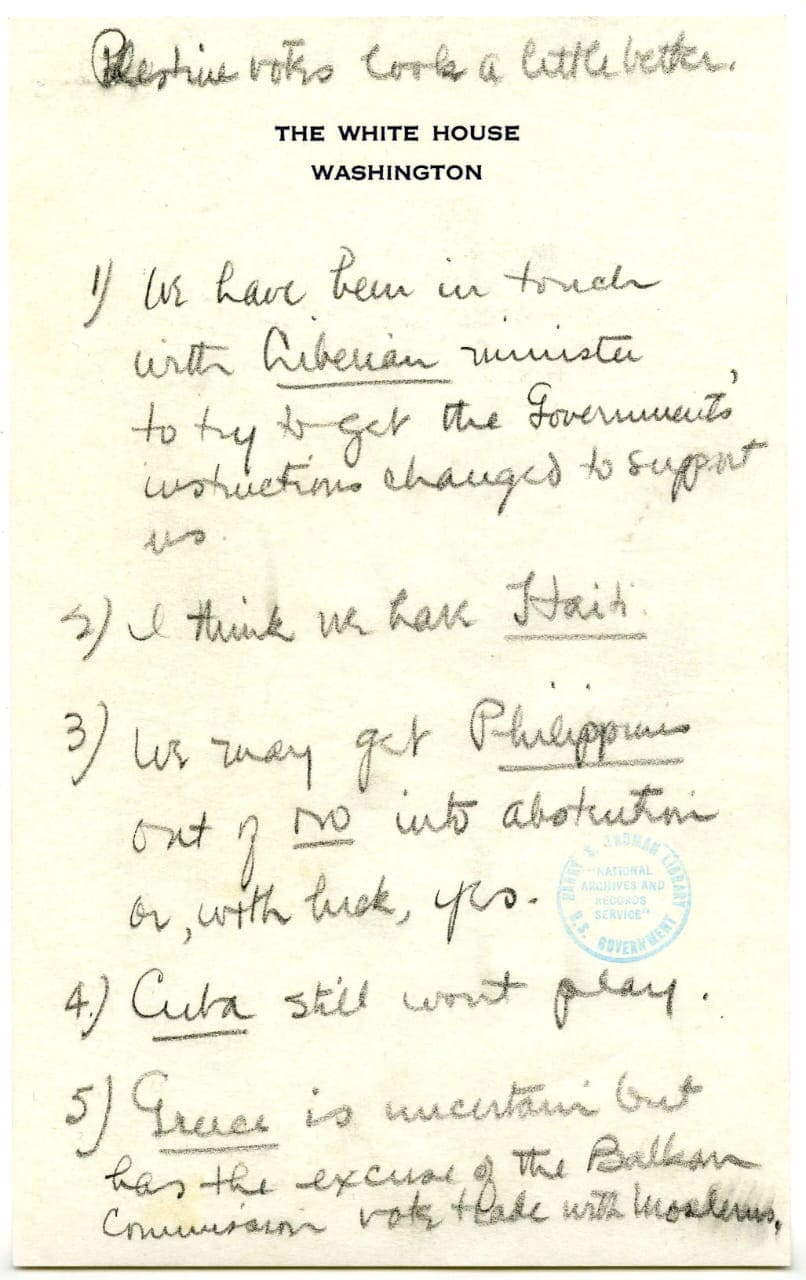 Palestine votes look a little better.
THE WHITE HOUSE
WASHINGTON
1) We have been in touch
with Liberian minister
to try to get the Government's
instructions changed to support
us.
2) I think we have Haiti.
3) We may get Philippines
out of No into abstention
or, with luck, yes.
HARRY S. TRUMAN LIBRARY
"NATIONAL
ARCHIVES AND
RECORDS
SERVICE"
U.S. GOVERNMENT
4.) Cuba still wont play.
5) Greece is uncertain but
has the excuse of the Balkan
Commission vote trade with Moslems.